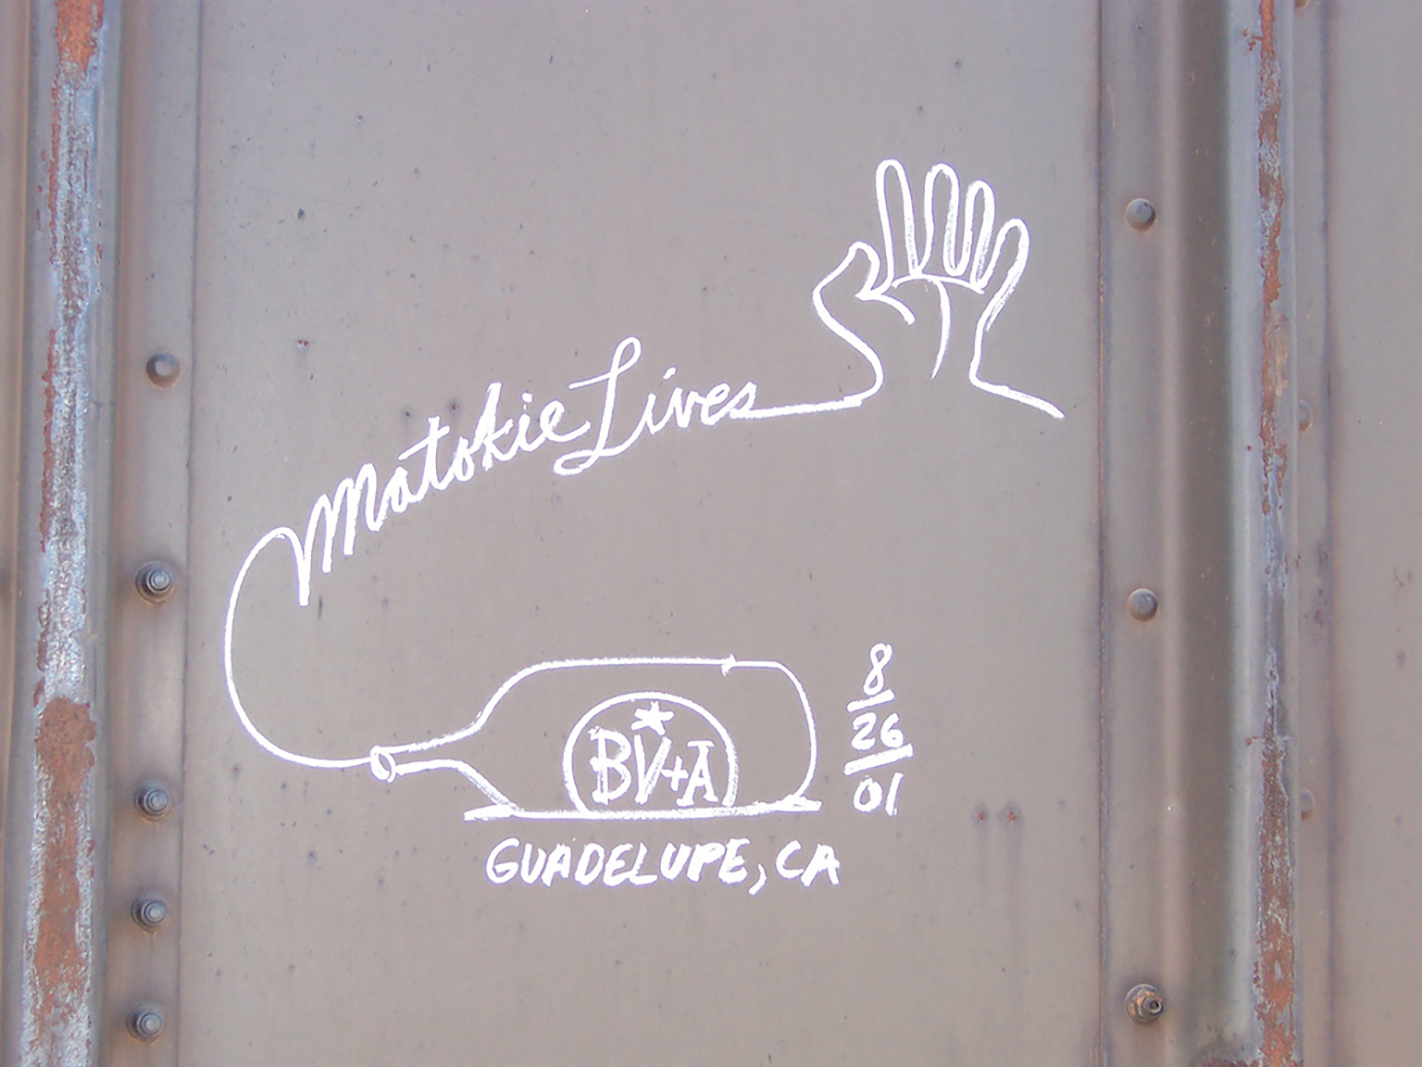 Matokie Lives
BV+A
8
26
01
GUADELUPE, CA